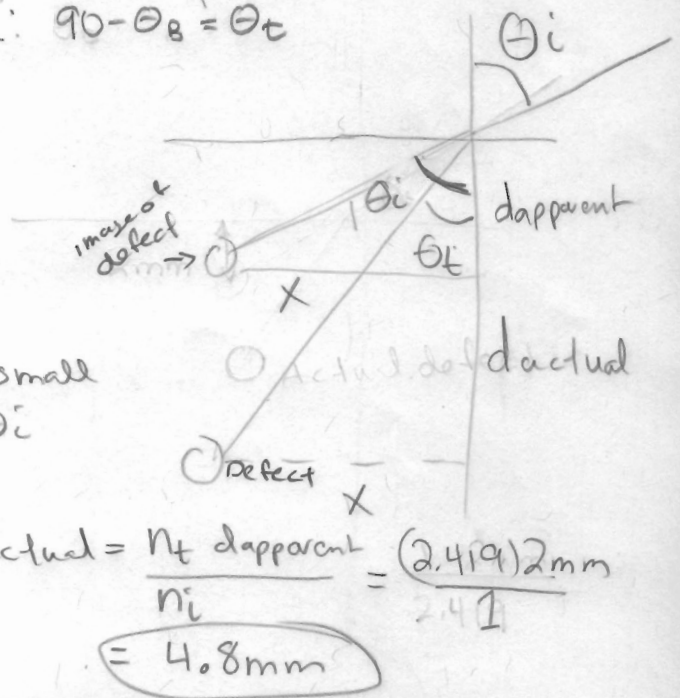 ∴ 90-θB = θt
θi
image of
defect →
θi
dapparent
θt
X
small
θi
dactual
Defect
X
ctual = nt dapparent / ni = (2.419)2mm / 1
= 4.8mm